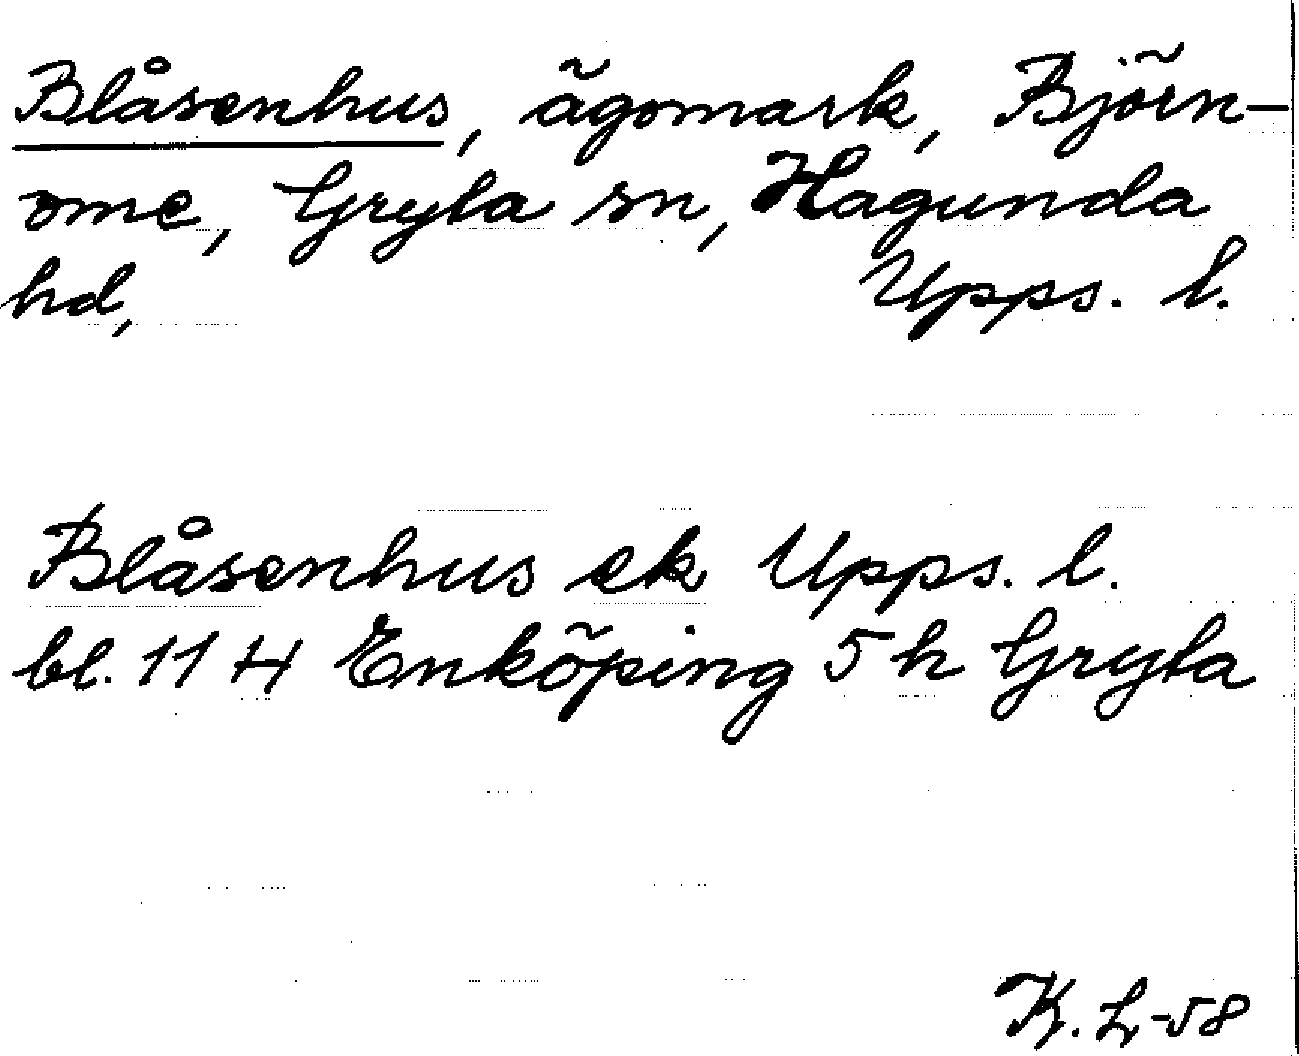 Blåsenhus, ägomark, Björn-
ome, Gryta sn, Hagunda
hd, Upps. l.
Blåsenhus ek Upps. l.
bl. 11 H Enköping 5 h Gryta
K. L-58